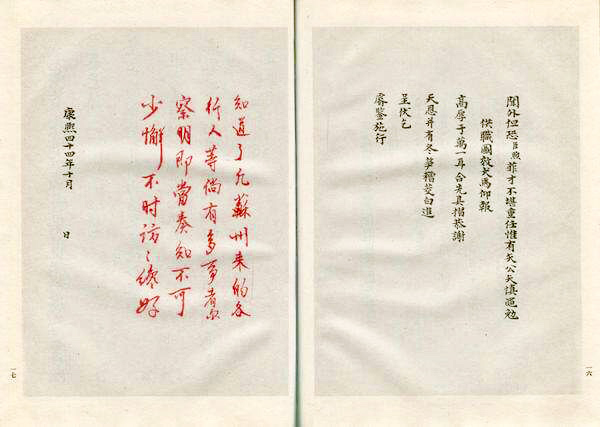 外但恐臣煦菲才不堪重任惟有矢公矢慎黽勉
供職圖效犬馬仰報
高厚于萬一耳合先具摺恭謝
天恩并有冬笋糟茭白進
呈伏乞
睿鑒施行
一六
知道了凡蘇州來的各
行人等倘有多事者尔
察明即當奏知不可
少懈不时訪〻纔好
康熙四十四年十月 日
一七